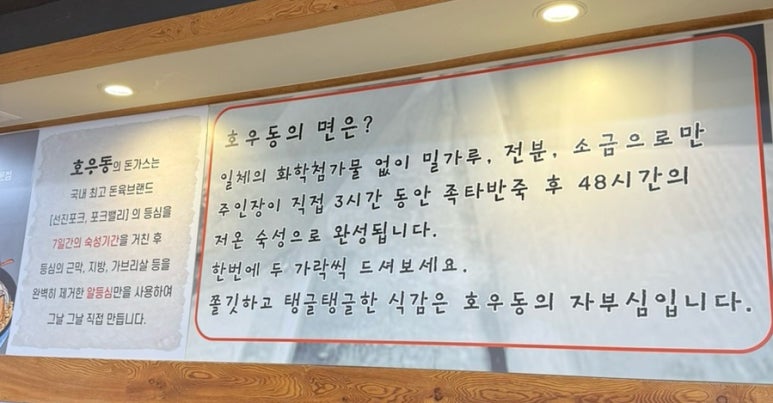 호우동의 돈가스는
국내 최고 돈육브랜드
[선진포크, 포크밸리] 의 등심을
7일간의 숙성기간을 거친 후
등심의 근막, 지방, 가브리살 등을
완벽히 제거한 알등심만을 사용하여
그날 그날 직접 만듭니다.
호우동의 면은?
일체의 화학첨가물 없이 밀가루, 전분, 소금으로만
주인장이 직접 3시간 동안 족타반죽 후 48시간의
저온 숙성으로 완성됩니다.
한번에 두 가락씩 드셔보세요.
쫄깃하고 탱글탱글한 식감은 호우동의 자부심입니다.